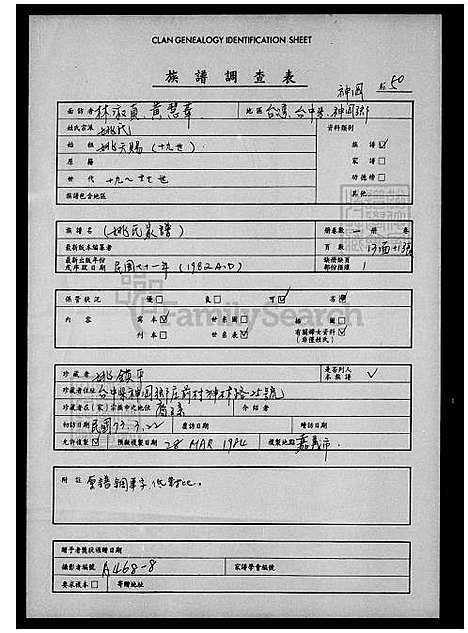 CLAN GENEALOGY IDENTIFICATION SHEET
族譜調查表
神岡 50
面訪者 林淑貞 黃慧華 地區 台灣 台中縣 神岡鄉
姓氏宗派 姚氏 資料類別
始祖 姚天賜 (十九世) 族譜 ☑
原籍 家譜 □
世代 十九~廿七世 功德榜 □
族譜包含地區 其他
族譜名 (姚氏家譜) 冊卷數 一 冊 卷
最新版本編纂者 頁數
最新出版年份或序取日期 民國七十一年 (1982 A.D) 缺冊缺頁部份描繪 1
保管狀況 優□ 良□ 可☑ 劣
內容 寫本☑ 世系圖□ 插圖□
刊本□ 世系表☑ 有關婦女資料(非僅姓氏)☑
珍藏者 姚鎮平 是否列入本族譜 ✓
珍藏者住址 台中縣神岡鄉庄前村神林路25號
珍藏者在(家)宗族中之地位 介紹者
初訪日期 民國73.3.22 覆訪日期 續訪日期
允許複製☑ 預擬複製日期 28 MAR 1984 複製地點 嘉義市
附註
贈予者獎狀頒贈日期
攝影者編號 A468-8 家譜學會編號
要求複本□ 寄贈地址
FamilySearch